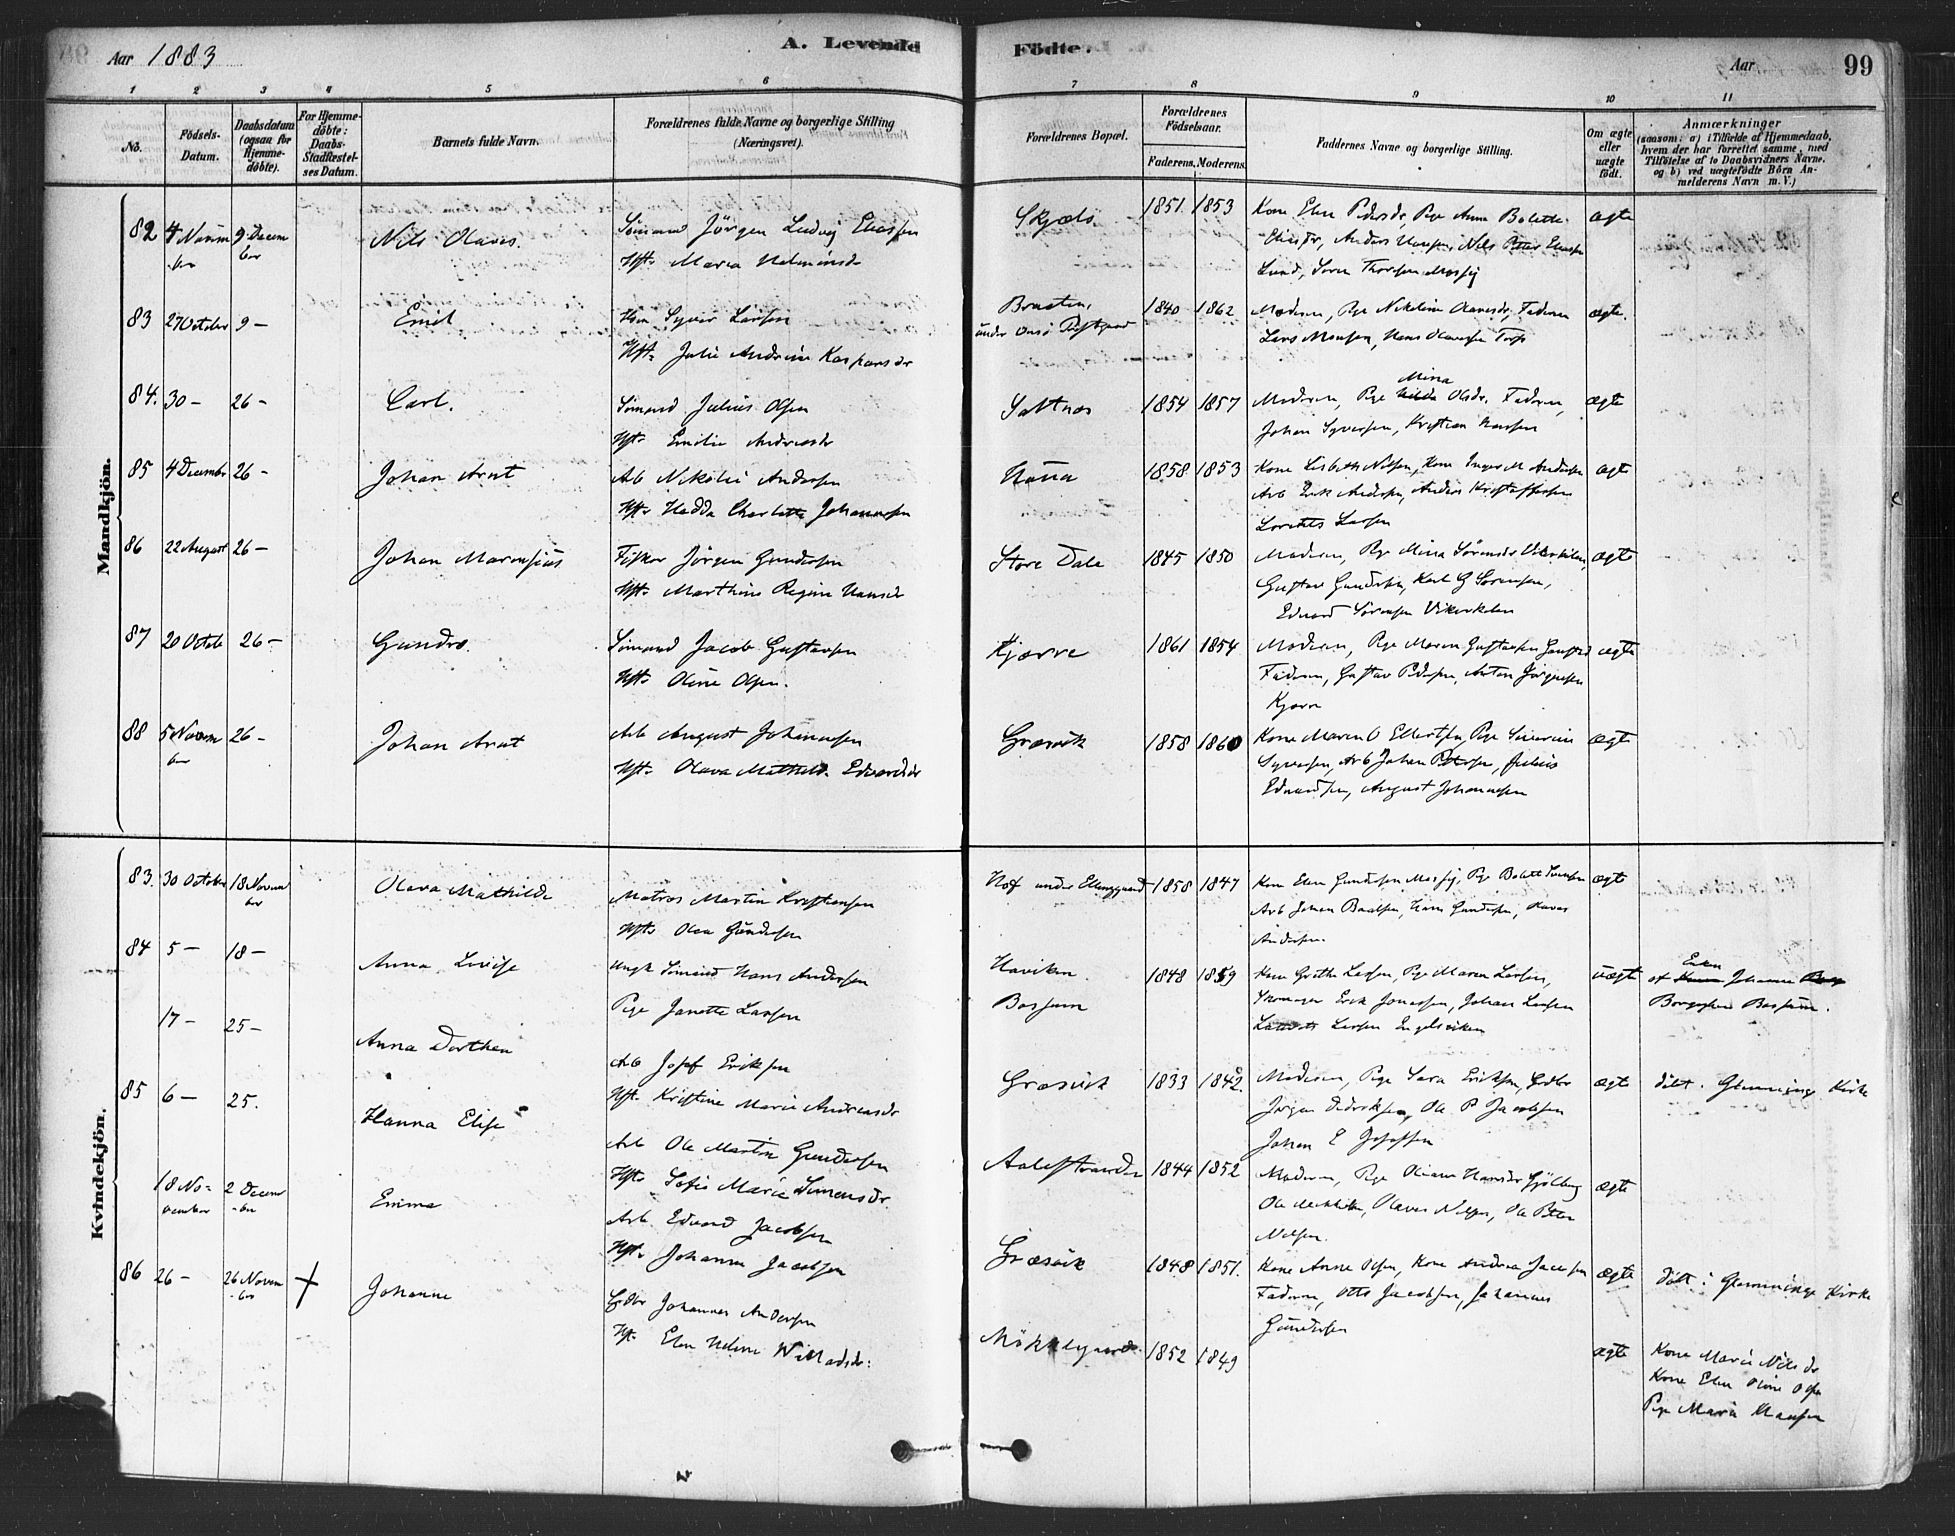 Aar 1883
A. Levende Födte.
Aar
99
1 2 3 4 5 6 7 8 9 10 11
No.
Födsels-Datum.
Daabsdatum (ogsaa for Hjemmedöbte).
For Hjemmedöbte: Daabs-Stadfæstelses Datum.
Barnets fulde Navn.
Forældrenes fulde Navne og borgerlige Stilling (Næringsvei).
Forældrenes Bopæl.
Forældrenes Födselsaar.
Faderens. Moderens.
Faddernes Navne og borgerlige Stilling.
Om ægte eller uægte födt.
Anmærkninger
(saasom: a) i Tilfælde af Hjemmedaab, hvem der har forrettet samme, med Tilföielse af to Daabsvidners Navne, og b) ved uægtefödte Börn Anmelderens Navn m. V.)
Mandkjön.
82 4 Novem ber 9 Decem ber Nils Olaves.
Sömand Jörgen Ludvig Eliassen
Hst. Maren
Skjæls 1851 1853
Kone Elen Pedersdr, Pige Anne Bolette
Eliasdr, Anders Hansen, Nils Petter Eliassen
Lund, Soren Thorsen
ægte
83 27 October 9 — Emil
Hst. Julie Andrine Kaspersdr
Braaten, under Onsö 1840 1862
Moderen, Pige Nikoline Olavesdr, Faderen
Lars Monsen, Hans Olavesen Torp
ægte.
84. 30 — 26 — Carl.
Sömand Julius Olsen
Hst. Emilie Andreasdr
Saltnæs 1854 1857
Moderen, Pige Mina Olsdr, Faderen,
Johan Syversen, Kristian Hansen
ægte
85 4 December 26 — Johan Arnt
Arb Nikolai Andersen
Hst. Hedda Charlotte Johannesen
Hauna 1858 1853
Kone Lisbeth Nilsen, Kone Inger M Andersen
Arb Erik Andersen, Anders Kristoffersen
Larsen
ægte
86 22 August 26 — Johan Marensius
Fisker Jörgen Gundersen
Hst. Marthine Regine Hansdr
Store Dale 1845 1850
Moderen, Pige Mina Sörensdr Vikerkilen,
Gustav Gundersen, Karl G Sörensen,
Edvard Sörensen Vikerkilen
ægte
87 20 Octobr 26 — Gundro.
Sömand Jacob Gustavsen
Hst. Oline Olsen.
Kjærre 1861 1854
Moderen, Pige Maren Gustavsen
Faderen, Gustav Pedersen, Anton Jörgensen
Kjærre
ægte
88 5 Novem ber 26 — Johan Arnt
Arb August Johannesen
Hst. Olava Mathilde Edvardsdr
Græsvik 1858 1860
Kone Maren O Ellertsen, Pige Severine
Syversen, Arb Johan Petersen, Julius
Edvardsen, August Johannesen
ægte
Kvindekjön.
83. 30 October 18 Novem ber Olava Mathilde
Matros Martin Kristiansen
Hst. Olea Gundersen
Hof under Elinggaard 1858 1847
Kone Elen Gundersen, Pige Bolett
Arb Johan, Hans Gundersen, Olaves
Andersen.
ægte
84 5 — 18 — Anna Lovise
Ungk Sömand Hans Andersen
Pige Janette Larsen
Haviken
Bossum
1848 1859
Kone Grethe Larsen, Pige Maren Larsen,
Skomager Erik Jonassen, Johan Larsen
Larsen Engelsviken
uægte
af Enken Johanne
Borgersen Bossum.
17 — 25 — Anna Dorthea
Arb Josef Eriksen
Hst. Kristine Marie Andreasdr
Græsvik 1833 1842.
Moderen, Pige Sara Eriksen, Gdbr
Jörgen Didriksen, Ole P Jacobsen
Johan E Josefsen
ægte
döbt i Glemminge Kirke
85 6 — 25. Hanna Elise
Arb Ole Martin Gundersen
Hst. Sofie Marie Simensdr
Aalestranden 1844 1852
Moderen, Pige Oliane Hansdr Gjölberg
Ole, Olaves Nilsen, Ole Petter
Nilsen.
ægte
18 November 2 Decem ber Emma
Arb Edvard Jacobsen
Hst. Johanne Jacobsen
Græsvik 1848 1851.
Kone Anne Olsen, Kone Andrea Jacobsen
Faderen, Otto Jacobsen, Johannes
Gundersen
ægte
döbt i Glemminge Kirke
86 26 — 26 Novem ber Johanne
Gdbr Johannes Andersen
Hst. Elen Helene Willadsdr.
Mökkelgaard 1852 1849
ægte
Kone Marie Nilsdr
Kone Elen Oline Olsen
Pige Marie Hansen